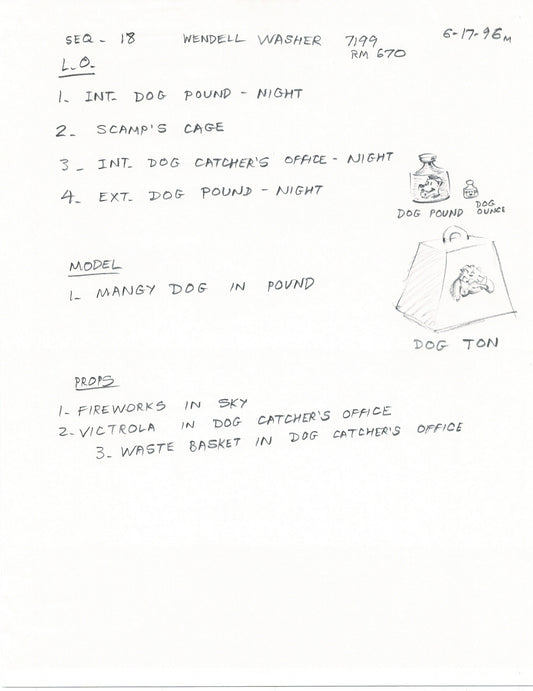 SEQ- 18 WENDELL WASHER 7199 6-17-96M
RM 670
L.O.
1- INT- DOG POUND - NIGHT
2- SCAMP'S CAGE
3- INT- DOG CATCHER'S OFFICE - NIGHT
4- EXT- DOG POUND - NIGHT
DOG POUND
DOG
OUNCE
DOG TON
MODEL
1- MANGY DOG IN POUND
PROPS
1- FIREWORKS IN SKY
2- VICTROLA IN DOG CATCHER'S OFFICE
3- WASTE BASKET IN DOG CATCHER'S OFFICE